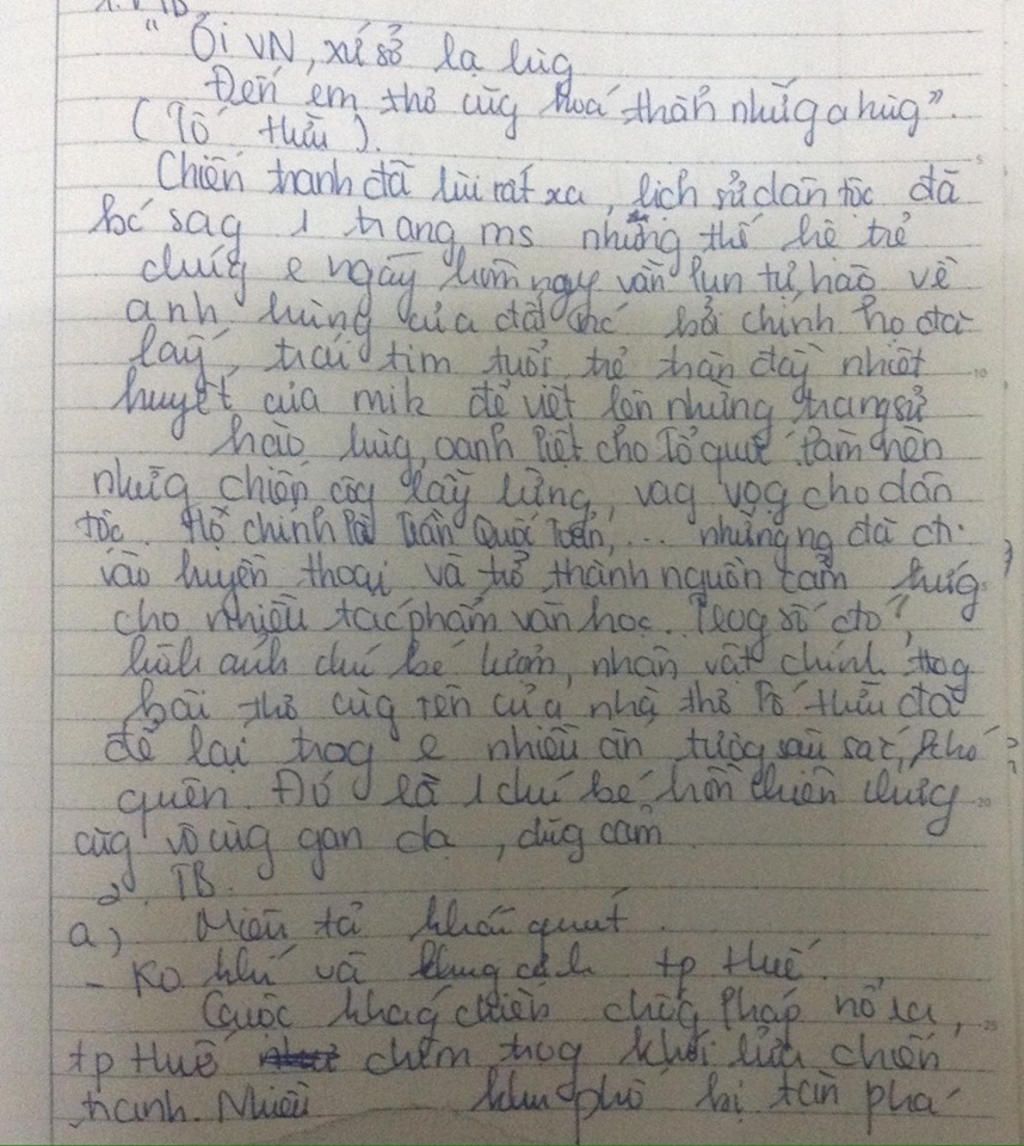 "Ôi VN, xứ sở lạ lùg
Đến em thơ cũg hoá thành nhữg a hùg".
(Tố Hữu).
Chiến tranh đã lùi rất xa, lịch sử dân tộc đã
sag 1 trang ms những thế hệ trẻ
chúg e ngày hôm nay vẫn lun tự hào về
anh hùng của đất bởi chính họ đã
lấy trái tim tuổi trẻ tràn đầy nhiệt
huyết của mik để viết lên những trang sử
hào hùg, oanh liệt cho Tổ quốc làm nên
nhữg chiến côg lẫy lừng, vag vọg cho dân
tộc. Họ chính là Trần Quốc Toản, ... những ng đã
vào huyền thoại và trở thành nguồn cảm hứg
cho nhiều tác phẩm văn học. Trog số đó,
hình ảnh chú bé Lượm, nhân vật chính trog
bài thơ cùg tên của nhà thơ Tố Hữu đã
để lại trog e nhiều ấn tượg sâu sắc, khó
quên. Đó là 1 chú bé hồn nhiên nhưg
cũg vô cùg gan dạ, dũg cảm
2. TB.
a) Miêu tả khái quát.
- Ko khí và khung cảnh tp Huế.
Cuộc khág chiến chốg Pháp nổ ra,
tp Huế chìm trog khói lửa chiến
tranh. Nhiều khu phố bị tàn phá